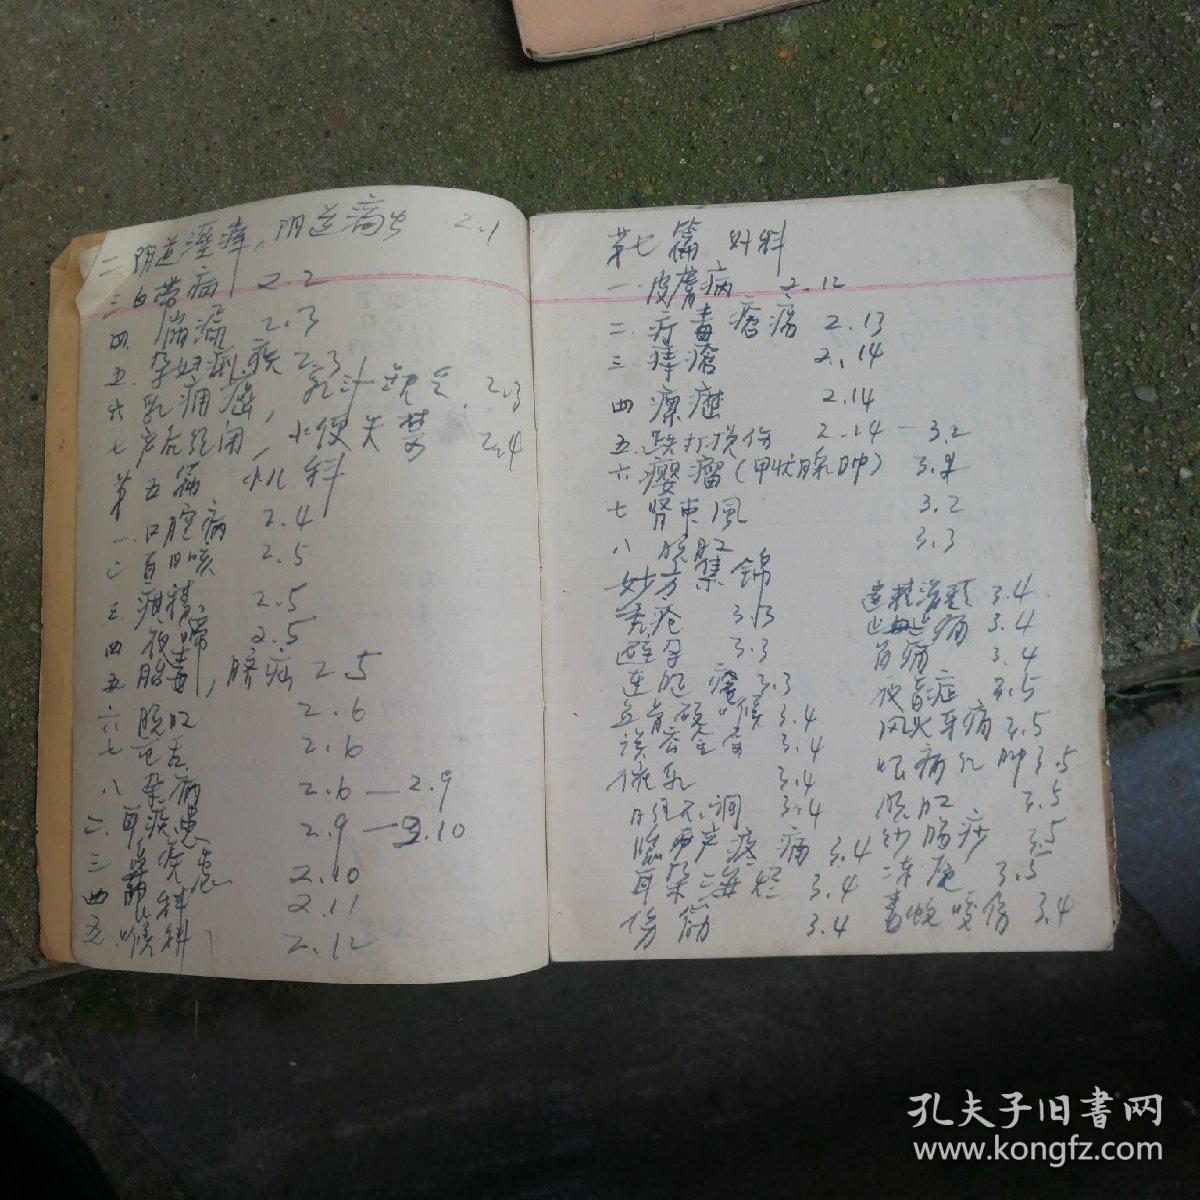 二 阴道湿痒, 阴道滴虫 2.1
三 白带病 2.2
四 崩漏 2.3
五 孕妇痢疾 2.3
六 乳痈症, 乳汁缺乏 2.3
七 产后经闭, 小便失禁 2.4
第五篇 小儿科
一 口腔病 2.4
二 百日咳 2.5
三 2.5
四 夜啼 2.5
五 胎毒, 脐症 2.5
六 脱肛 2.6
七 2.6
八 杂病 2.6—2.9
二 耳疾患 2.9—2.10
三 鼻 2.10
四 眼科 2.11
五 喉科 2.12
第七篇 外科
一 皮膚病 2.12
二 疔毒瘡瘍 2.13
三 痔瘡 2.14
四 瘰癧 2.14
五 跌打损伤 2.14—3.2
六 瘿瘤(甲状腺肿) 3.2
七 肾束風 3.2
八 脱肛 3.3
妙方集锦
秃疮 3.3
避孕 3.3
3.3
3.4
3.4
3.4
月经不调 3.4
疼痛 3.4
耳 3.4
伤筋 3.4
遗精滑精 3.4
止血止痛 3.4
胃痛 3.4
夜盲症 3.5
风火牙痛 3.5
眼痛 肿 3.5
脱肛 3.5
绞肠痧 3.5
冻疮 3.5
毒蛇咬伤 3.4
孔夫子旧書网
www.kongfz.com